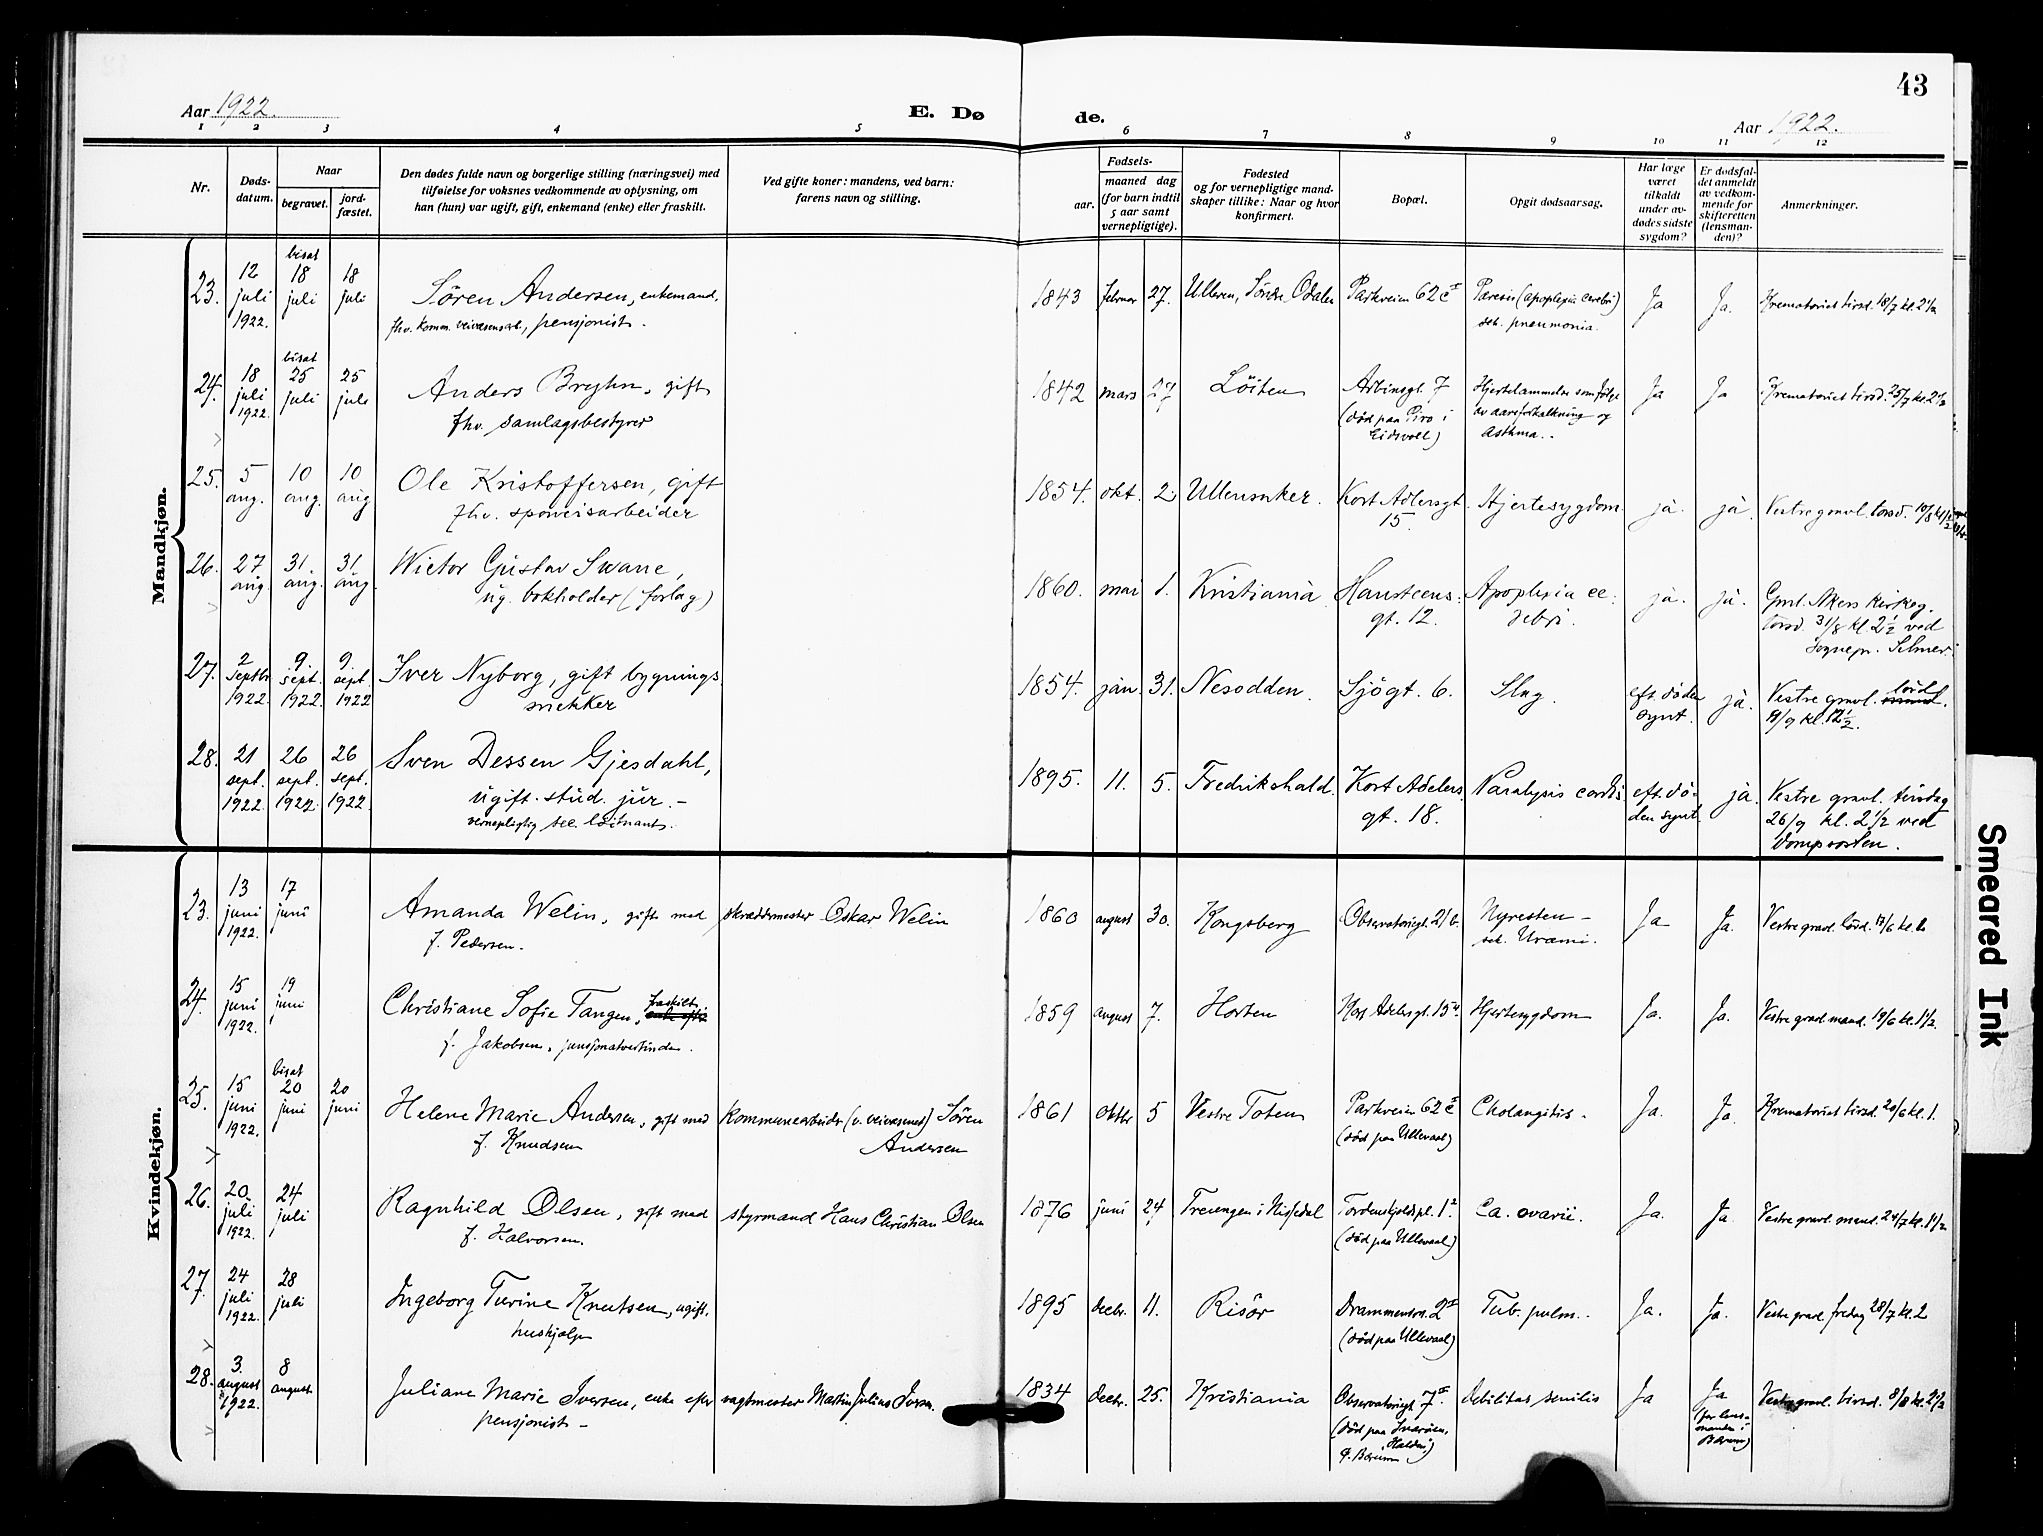 43
Aar 1922.
E. Dø
de.
Aar 1922.
1 2 3 4 5 6 7 8 9 10 11 12
Nr.
Døds-
datum.
Naar
begravet.
jord-
fæstet.
Den dødes fulde navn og borgerlige stilling (næringsvei) med
tilføielse for voksnes vedkommende av oplysning, om
han (hun) var ugift, gift, enkemand (enke) eller fraskilt.
Ved gifte koner: mandens, ved barn:
farens navn og stilling.
Fødsels-
aar.
maaned dag
(for barn indtil
5 aar samt
vernepligtige).
Fødested
og for vernepligtige mand-
skaper tillike: Naar og hvor
konfirmert.
Bopæl.
Opgit dødsaarsag.
Har læge
været
tilkaldt
under av-
dødes sidste
sygdom?
Er dødsfal-
det anmeldt
av vedkom-
mende for
skifteretten
(lensman-
den)?
Anmerkninger.
Mandkjøn.
23.
12
juli
1922.
bisat
18
juli
18
juli
Sören Andersen, enkemand,
fhv. komm. veivæsensarb., pensjonist.
1843 februar 27. Ulleren, Söndre Odalen
Parkveien 62 c I
Paresis (apoplexia cerebri)
seb. pneumonia.
Ja Ja. Krematoriet tirsd. 18/7 kl. 2 1/2
24.
18
juli
1922.
bisat
25
juli
25
juli
Anders Bryhn, gift
fhv. samlagsbestyrer
1842 mars 27 Löiten
Arbinsgt. 7
(död paa Piro i
Eidsvoll)
Hjertelammelse som følge
av aareforkalkning og
Asthma..
Ja Ja Krematoriet tirsd. 25/7 kl. 2 1/2
25.
5
aug.
10
aug.
10
aug
Ole Kristoffersen, gift
fhv. sporveisarbeider
1854. okt. 2. Ullensaker.
Kort Adlersgt.
15.
Hjertesygdom
ja. ja. Vestre gravl. torsd. 10/8
26.
27
aug.
31.
aug.
31.
aug.
Wictor Gustav Swane,
ug. bokholder (forlag)
1860. mai 1. Kristiania
Hansteens:
gt. 12.
Apoplexia ce:
rebri.
ja. ja.
Gml. Akers kirkeg.
torsd. 31/8 kl. 2 1/2 ved
Sognepr. Selmer.
27.
2
Septbr
1922.
9.
sept.
1922.
9.
sept.
1922
Iver Nyborg, gift bygnings
snekker
1854. jan. 31. Nesodden.
Sjögt. 6.
Slag.
eft. döden
synt.
ja.
Vestre gravl. lörd.
9/9 kl. 12 1/2.
28.
21
sept.
1922.
26
sept.
1922.
26
sept.
1922.
Sven Dessen Gjesdahl,
ugift. stud. jur. -
vernepligtig sec. löitnant.
1895. 11. 5. Fredrikshald.
Kort Adelers
gt. 18.
Paralysis cordis
eft. dö-
den synt.
ja.
Vestre gravl. tirsdag
26/9 kl. 2 1/2 ved
Domprosten.
Kvindekjøn.
23.
13
juni
1922.
17
juni
Amanda Welin, gift med
f. Pedersen.
skræddermester Oskar Welin
1860 august 30. Kongsberg
Observatoriegt. 21 b.
Nyresten -
seb. Uræmi.
Ja Ja. Vestre gravl. lörd. 17/6 kl.
24.
15
juni
1922.
19
juni
Christiane Sofie Tangen, fraskilt
f. Jakobsen, pensjonatvertinde.
1859 august 7. Horten
Kort Adelersgt. 15
Hjertesygdom
Ja. Ja. Vestre gravl. mand. 19/6 kl. 1 1/2.
25.
15
juni
1922.
bisat
20
juni
20
juni
Helene Marie Andersen, gift med
f. Knudsen
kommunearbeider (v. veivæsenet) Sören
Andersen
1861 oktbr 5 Vestre Toten
Parkveien 62 c I
(död paa Ullevaal)
Cholangitis.
Ja. Ja Krematoriet tirsd. 20/6 kl. 1.
26.
20
juli
1922.
24
juli
Ragnhild Olsen, gift med
f. Halvorsen.
styrmand Hans Christian Olsen
1876 juni 24 Treungen i Nissedal
Tordenskjoldspl. 1 2.
(död paa Ullevaal)
Ca. ovarii.
Ja. Ja. Vestre gravl. mand. 24/7 kl. 1 1/2
27.
24
juli
1922.
28
juli
Ingeborg Turine Knutsen, ugift.
hushjelp
1895 decbr. 11. Risör
Drammensv. 2 I
(död paa Ullevaal)
Tub. pulm..
Ja. Ja. Vestre gravl. fredag 28/7 kl. 2
28.
3.
august
1922.
8
august
Juliane Marie Iversen, enke efter
pensjonist -
vagtmester Martin Julius Iversen.
1834 decbr. 25. Kristiania
Observatoriegt 7 I.
(död paa Snaröen,
Halden)
Debilitas senilis
Ja
Ja
(for lens-
manden i
Bærum)
Vestre gravl. tirsd. 8/8 kl. 2 1/2
Smeared Ink